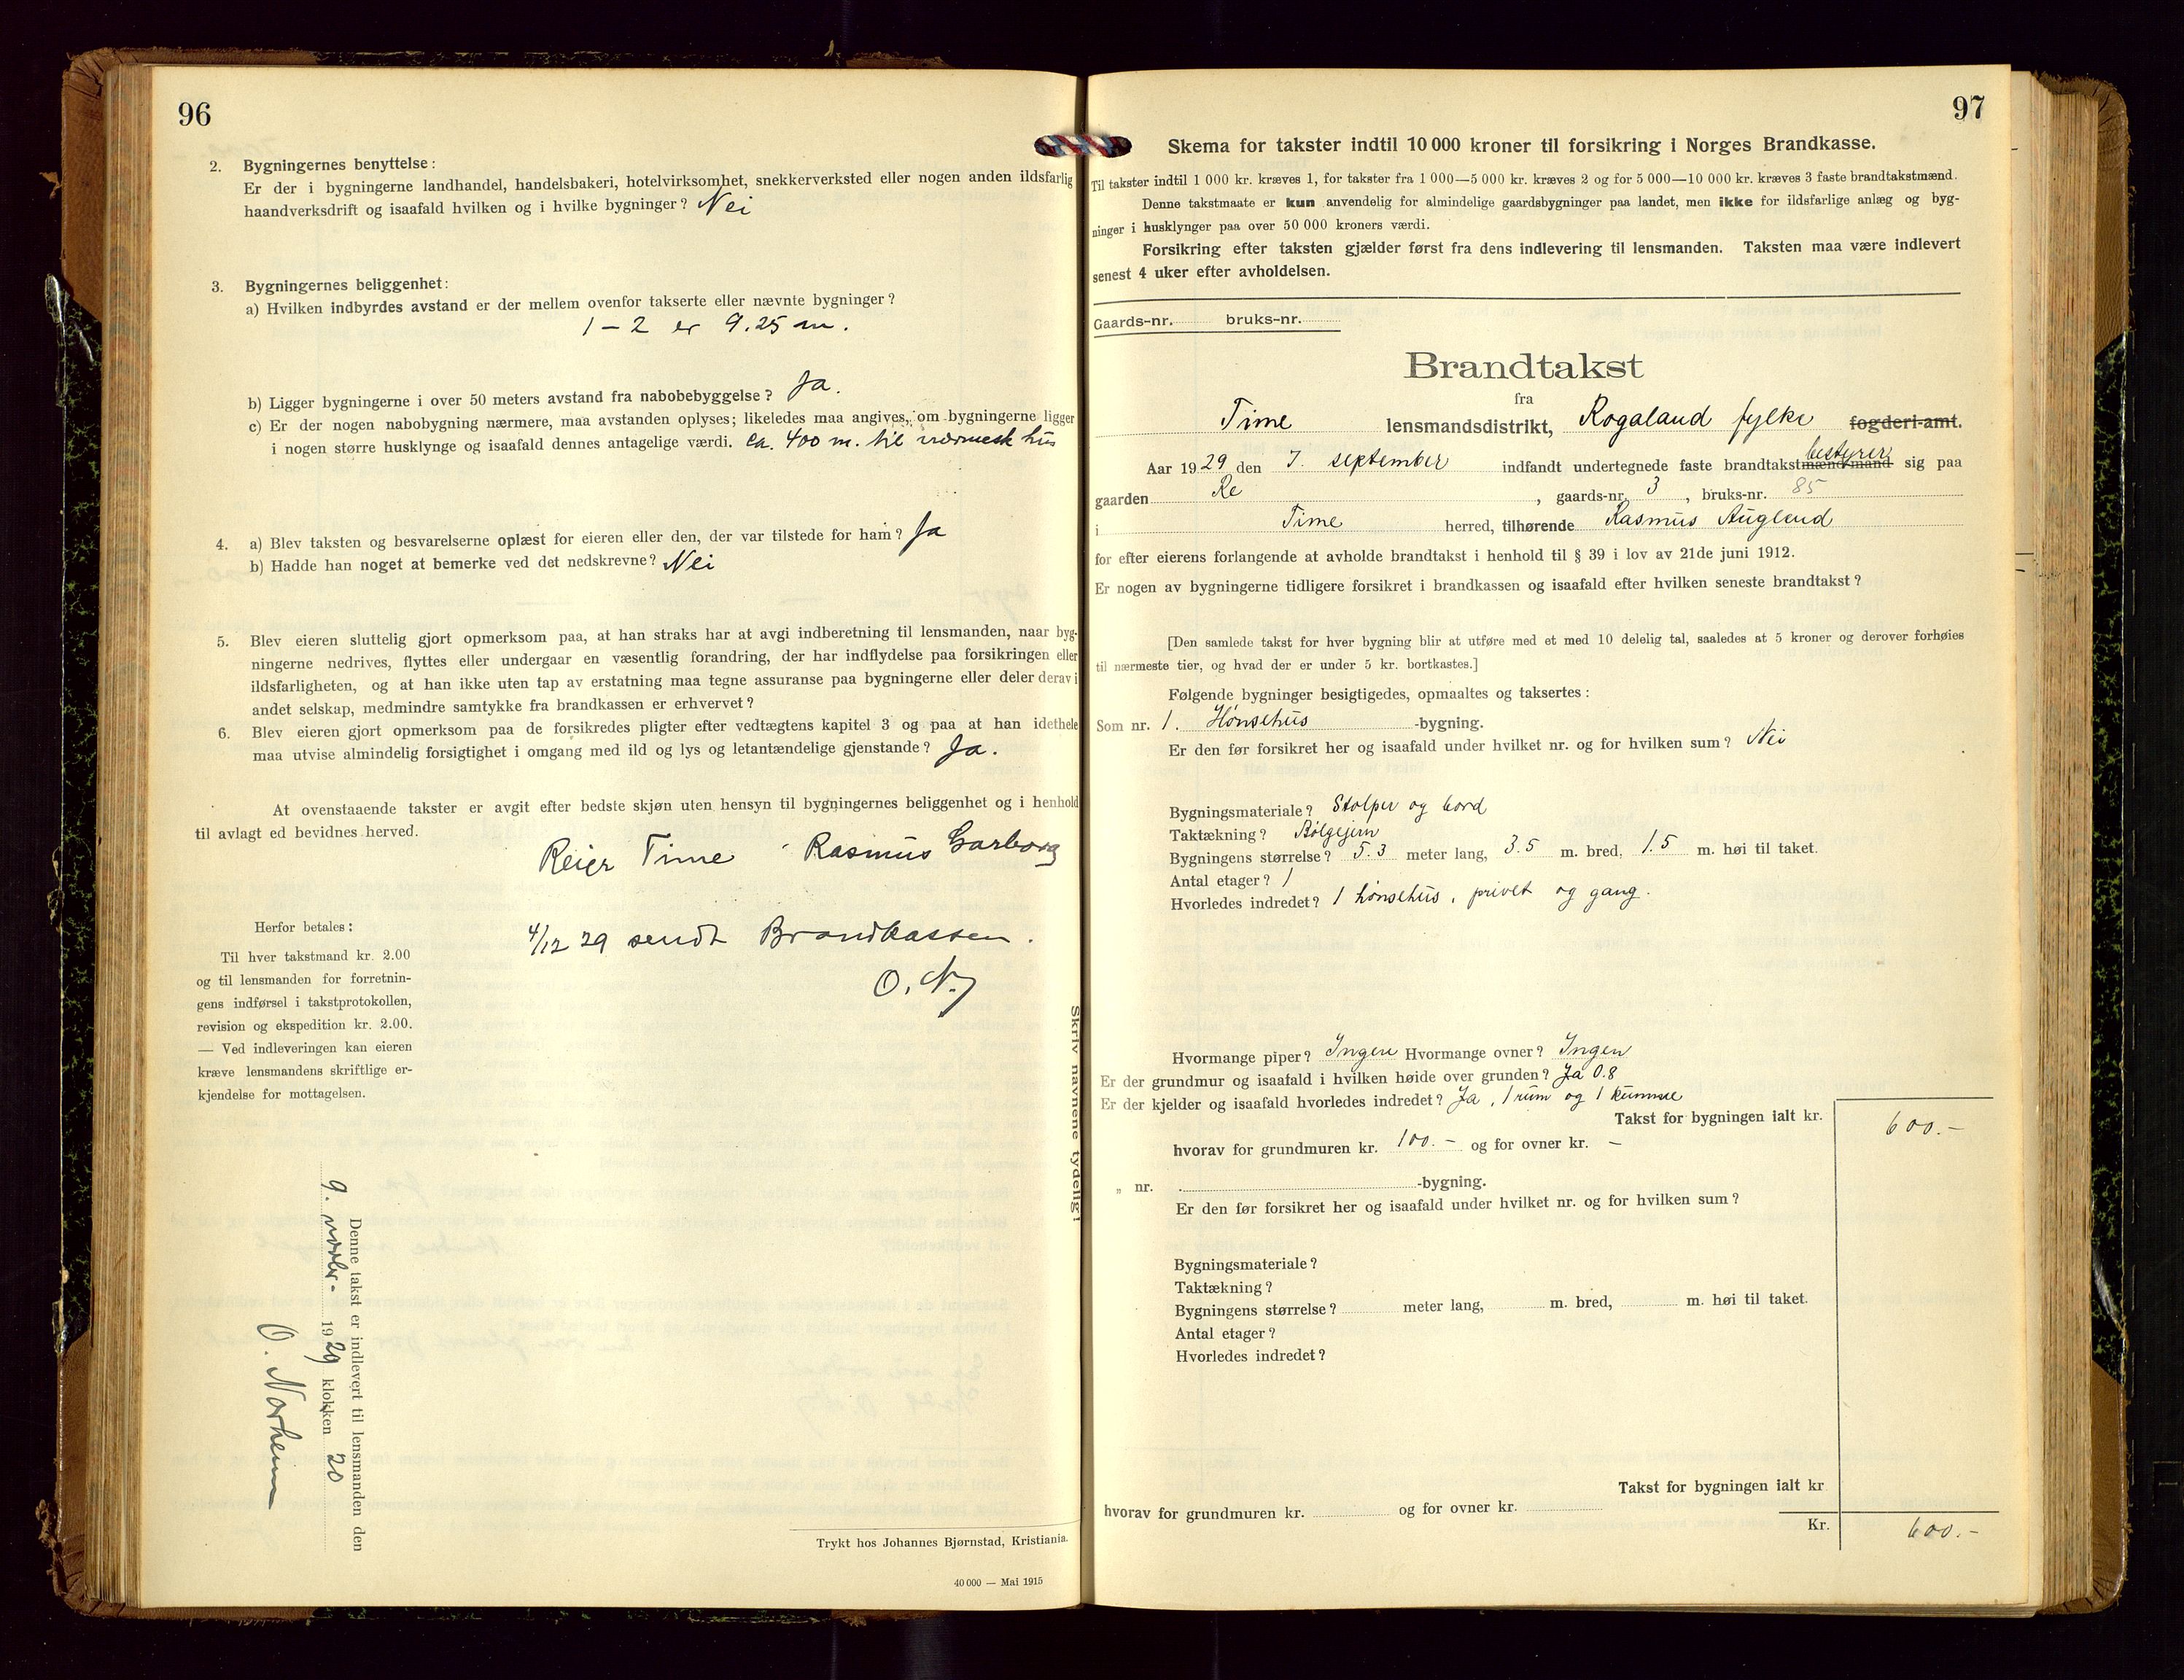 96
2. Bygningernes benyttelse:
Er der i bygningerne landhandel, handelsbakeri, hotelvirksomhet, snekkerverksted eller nogen anden ildsfarlig
haandverksdrift og isaafald hvilken og i hvilke bygninger? Nei
3. Bygningernes beliggenhet:
a) Hvilken indbyrdes avstand er der mellem ovenfor takserte eller nævnte bygninger?
1 – 2 er 9.25 m.
b) Ligger bygningerne i over 50 meters avstand fra nabobebyggelse? Ja.
c) Er der nogen nabobygning nærmere, maa avstanden oplyses; likeledes maa angives, om bygningerne ligger
i nogen større husklynge og isaafald dennes antagelige værdi. ca. 400 m. til nærmeste hus
4. a) Blev taksten og besvarelserne oplæst for eieren eller den, der var tilstede for ham? Ja
b) Hadde han noget at bemerke ved det nedskrevne? Nei
5. Blev eieren sluttelig gjort opmerksom paa, at han straks har at avgi indberetning til lensmanden, naar byg-
ningerne nedrives, flyttes eller undergaar en væsentlig forandring, der har indflydelse paa forsikringen eller
ildsfarligheten, og at han ikke uten tap av erstatning maa tegne assuranse paa bygningerne eller deler derav i
andet selskap, medmindre samtykke fra brandkassen er erhvervet?
6. Blev eieren gjort opmerksom paa de forsikredes pligter efter vedtægtens kapitel 3 og paa at han idethele
maa utvise almindelig forsigtighet i omgang med ild og lys og letantændelige gjenstande? Ja.
At ovenstaaende takster er avgit efter bedste skjøn uten hensyn til bygningernes beliggenhet og i henhold
til avlagt ed bevidnes herved.
Reier Time Rasmus Garborg
4/12 29 sendt Brandkassen.
O. N.
Herfor betales:
Til hver takstmand kr. 2.00
og til lensmanden for forretnin-
gens indførsel i takstprotokollen,
revision og ekspedition kr. 2.00.
— Ved indleveringen kan eieren
kræve lensmandens skriftlige er-
kjendelse for mottagelsen.
Skriv navnene tydelig!
Denne takst er indlevert til lensmanden den
9. novbr. 1929 klokken 20
O. Norheim
Trykt hos Johannes Bjørnstad, Kristiania.
40 000 — Mai 1915
97
Skema for takster indtil 10 000 kroner til forsikring i Norges Brandkasse.
Til takster indtil 1 000 kr. kræves 1, for takster fra 1 000—5 000 kr. kræves 2 og for 5 000—10 000 kr. kræves 3 faste brandtakstmænd.
Denne takstmaate er kun anvendelig for almindelige gaardsbygninger paa landet, men ikke for ildsfarlige anlæg og byg-
ninger i husklynger paa over 50 000 kroners værdi.
Forsikring efter taksten gjælder først fra dens indlevering til lensmanden. Taksten maa være indlevert
senest 4 uker efter avholdelsen.
Gaards-nr. bruks-nr.
Brandtakst
fra
Time lensmandsdistrikt, Rogaland fylke fogderi-amt.
Aar 1929 den 7. september indfandt undertegnede faste brandtakstmænd mand bestyrer sig paa
gaarden Re , gaards-nr. 3 , bruks-nr. 85
i Time herred, tilhørende Rasmus Augland
for efter eierens forlangende at avholde brandtakst i henhold til § 39 i lov av 21de juni 1912.
Er nogen av bygningerne tidligere forsikret i brandkassen og isaafald efter hvilken seneste brandtakst?
[Den samlede takst for hver bygning blir at utføre med et med 10 delelig tal, saaledes at 5 kroner og derover forhøies
til nærmeste tier, og hvad der er under 5 kr. bortkastes.]
Følgende bygninger besigtigedes, opmaaltes og taksertes:
Som nr. 1. Hönsehus -bygning.
Er den før forsikret her og isaafald under hvilket nr. og for hvilken sum? Nei
Bygningsmateriale? Stolper og bord
Taktækning? Bölgejern
Bygningens størrelse? 5.3 meter lang, 3.5 m. bred, 1.5 m. høi til taket.
Antal etager? 1
Hvorledes indredet? 1 hönsehus, privet og gang.
Hvormange piper? Ingen Hvormange ovner? Ingen
Er der grundmur og isaafald i hvilken høide over grunden? Ja 0.8
Er der kjelder og isaafald hvorledes indredet? Ja, 1 rum og 1 kumme
Takst for bygningen ialt kr. 600.–
hvorav for grundmuren kr. 100.– og for ovner kr. –
„ nr. -bygning.
Er den før forsikret her og isaafald under hvilket nr. og for hvilken sum?
Bygningsmateriale?
Taktækning?
Bygningens størrelse? meter lang, m. bred, m. høi til taket.
Antal etager?
Hvorledes indredet?
Takst for bygningen ialt kr
hvorav for grundmuren kr. og for ovner kr.
Kr. 600.–